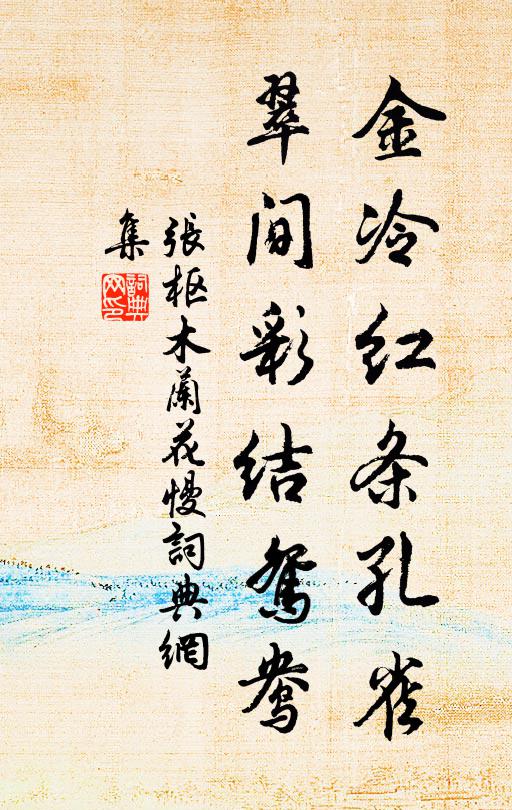 金冷红条孔雀
翠间彩结鸳鸯
張枢木蘭花慢詞典網
集
詞典
网印